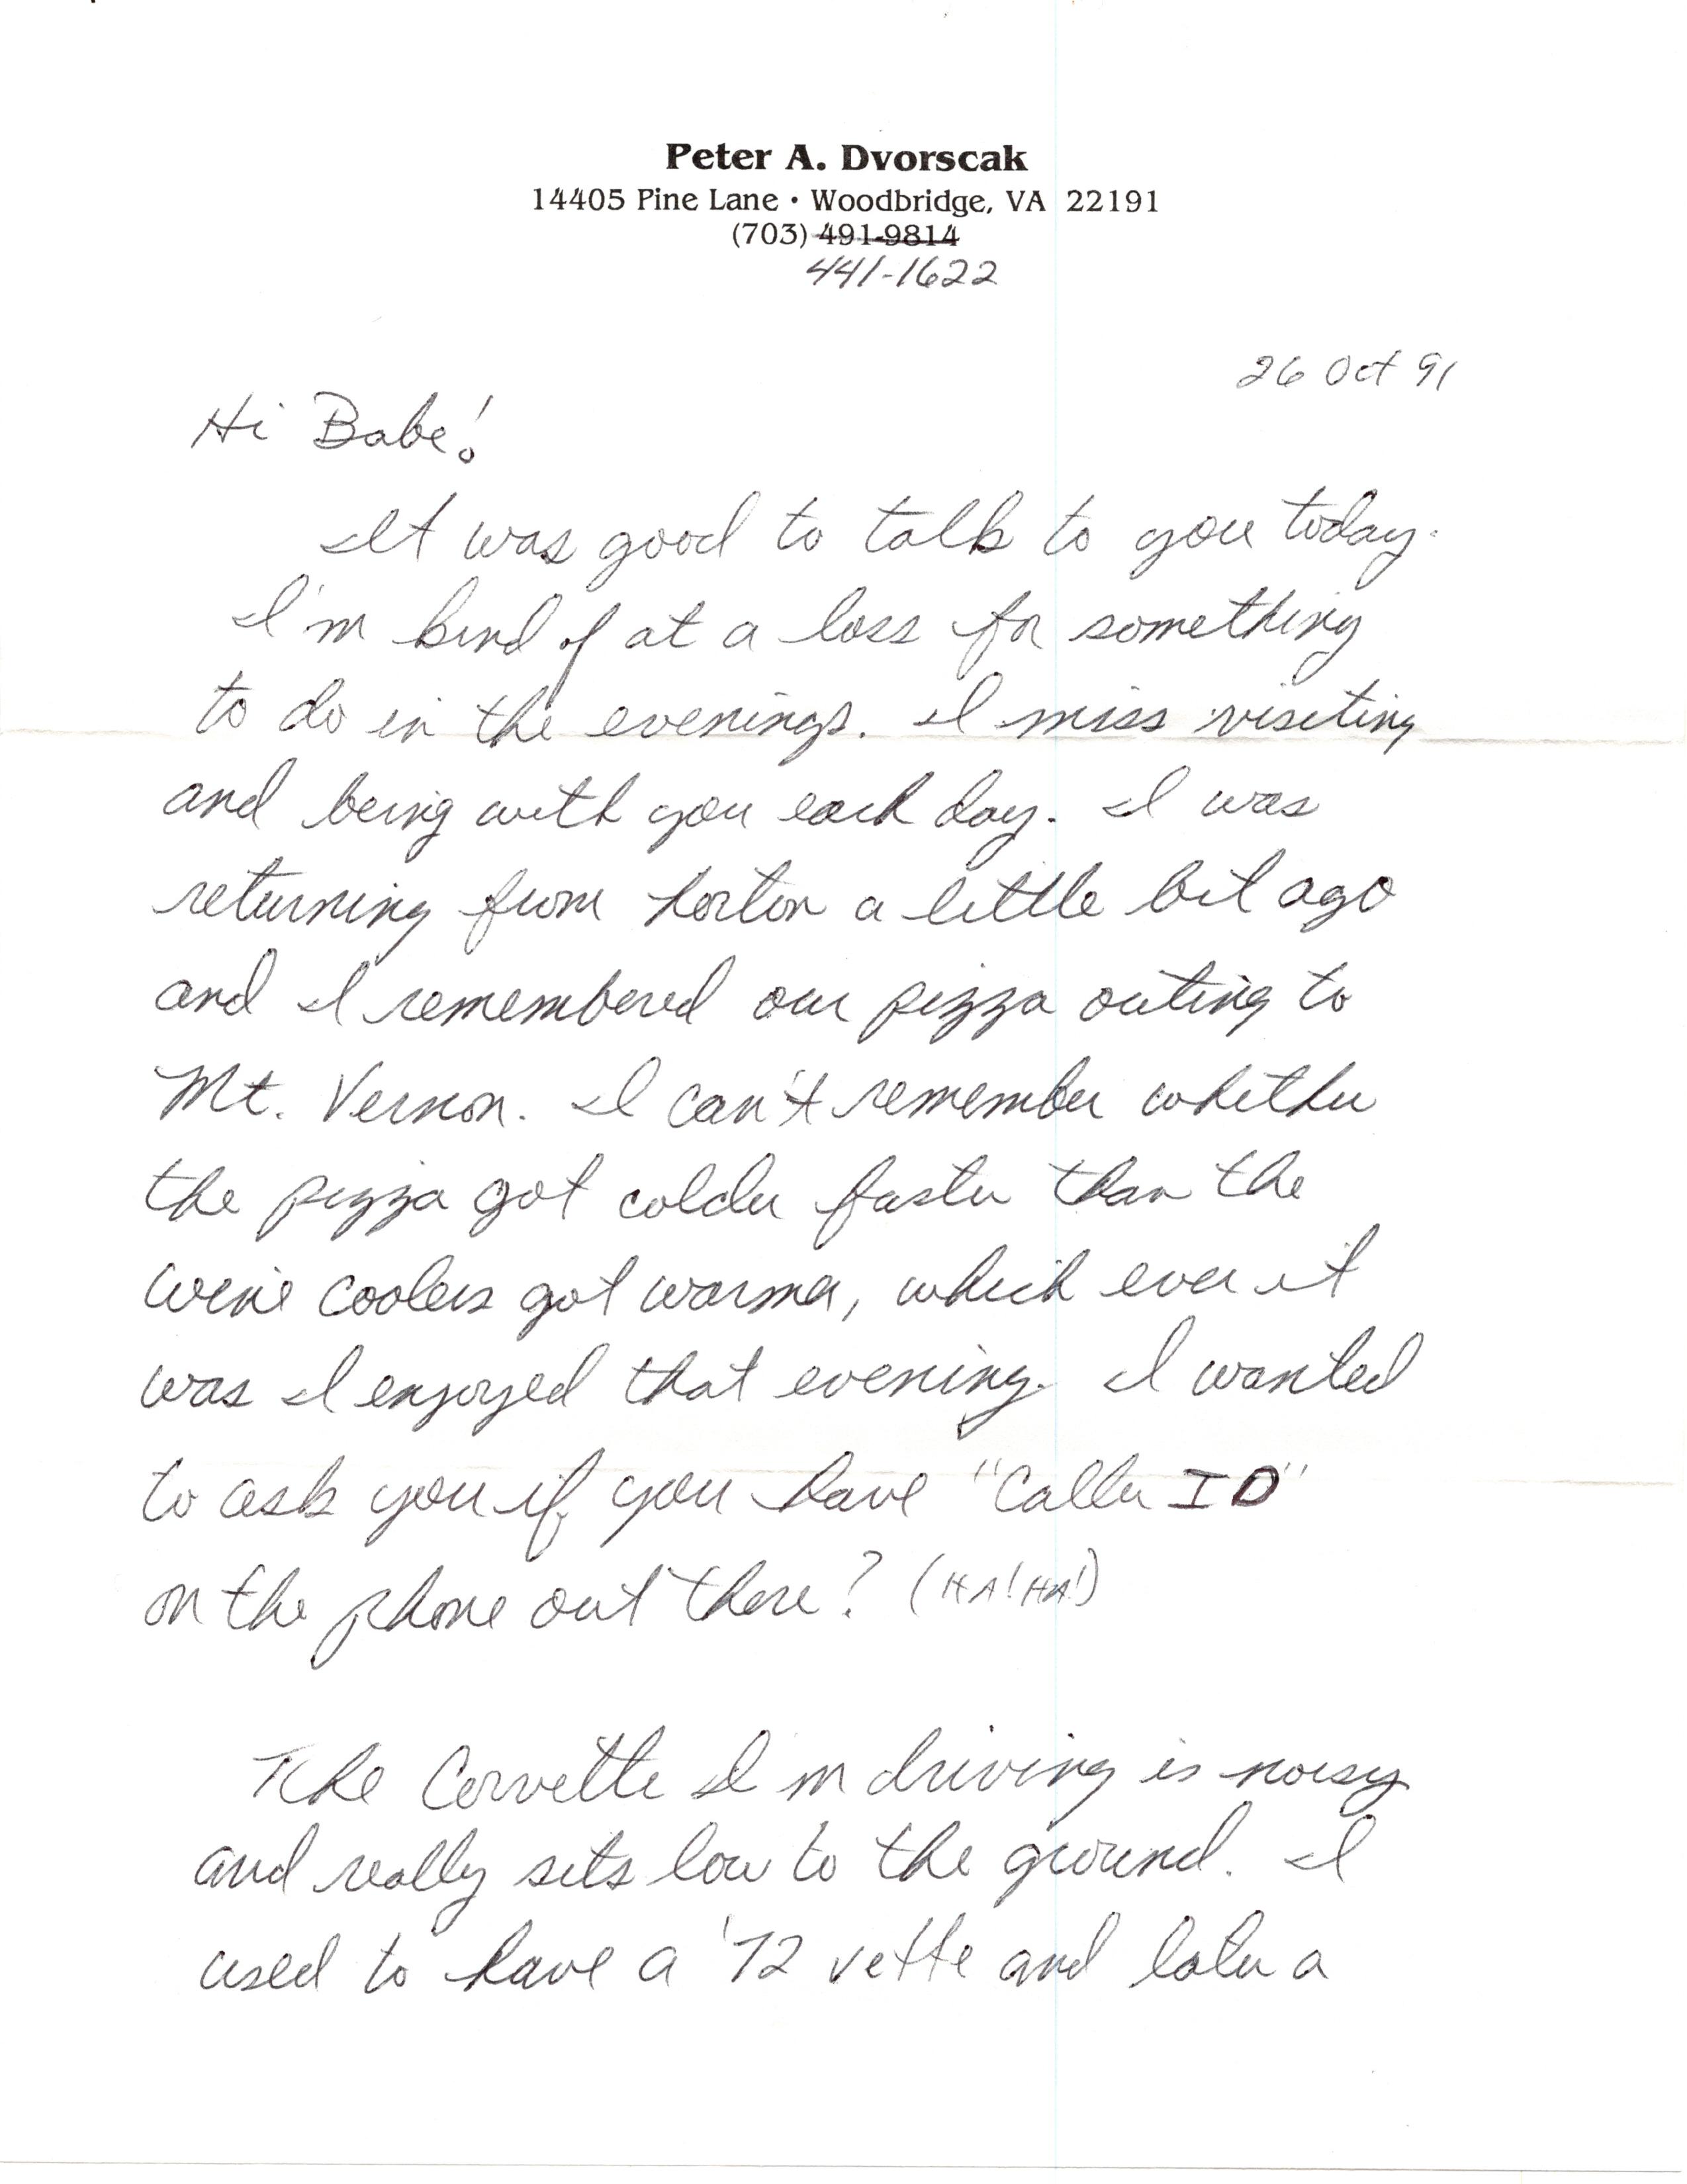 Peter A. Dvorscak
14405 Pine Lane • Woodbridge, VA 22191
(703) 491-9814
441-1622
26 Oct 91
Hi Babe!
It was good to talk to you today.
I'm kind of at a loss for something
to do in the evenings. I miss visiting
and being with you each day. I was
returning from Lorton a little bit ago
and I remembered our pizza outing to
Mt. Vernon. I can't remember whether
the pizza got colder faster than the
wine coolers got warmer, which ever it
was I enjoyed that evening. I wanted
to ask you if you have "Caller ID"
on the phone out there? (HA! HA!)
The Corvette I'm driving is noisy
and really sits low to the ground. I
used to have a '72 vette and later a